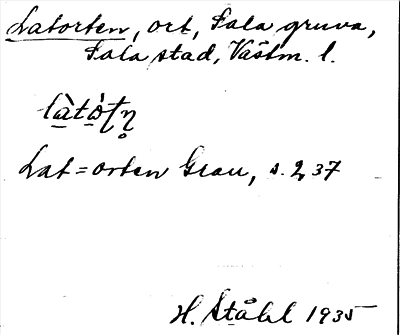 Latorten, ort, Sala gruva,
Sala stad, Västm. l.
Lat=orten Grau, s. 237
H. Ståhl 1935